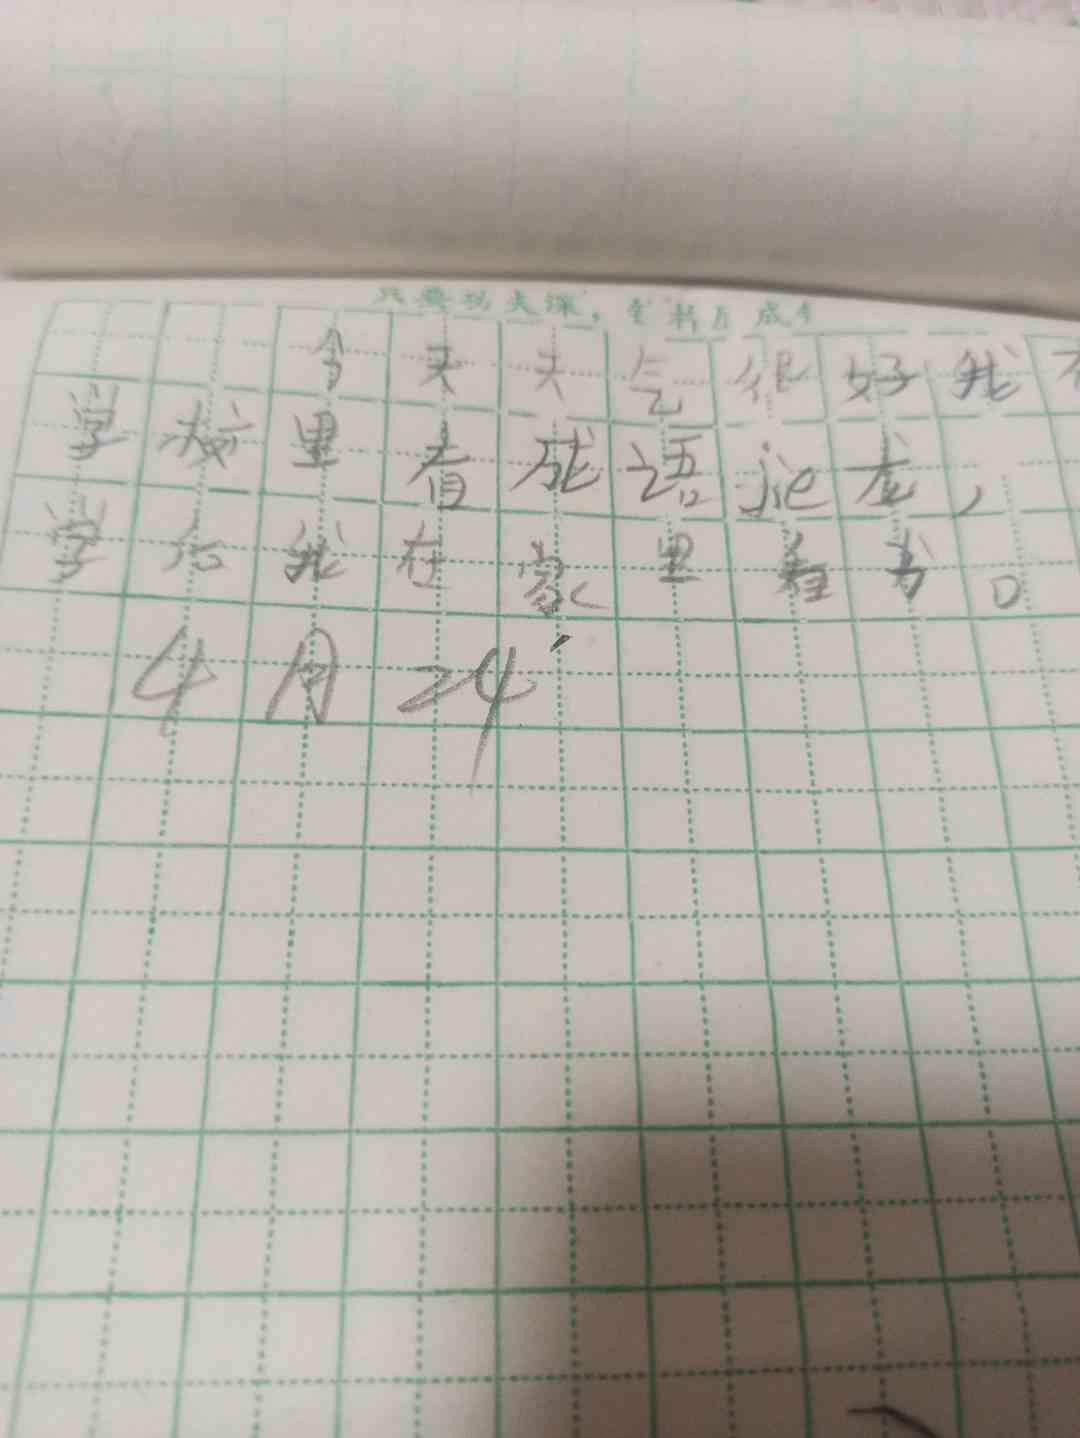 只要功夫深，
今天天气很好我
学校里看成语记龙，
学后我在家里看书。
4月24